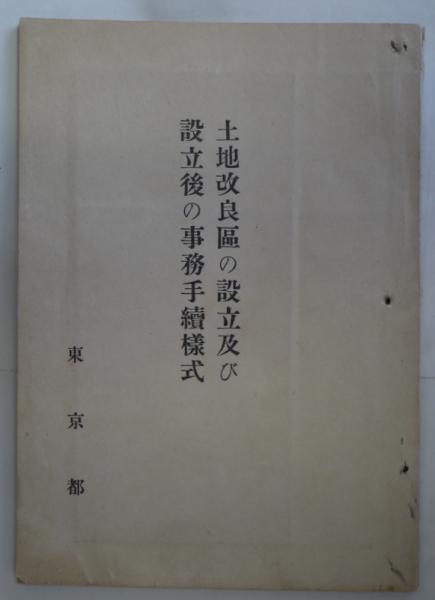 土地改良區の設立及び
設立後の事務手續樣式
東京都